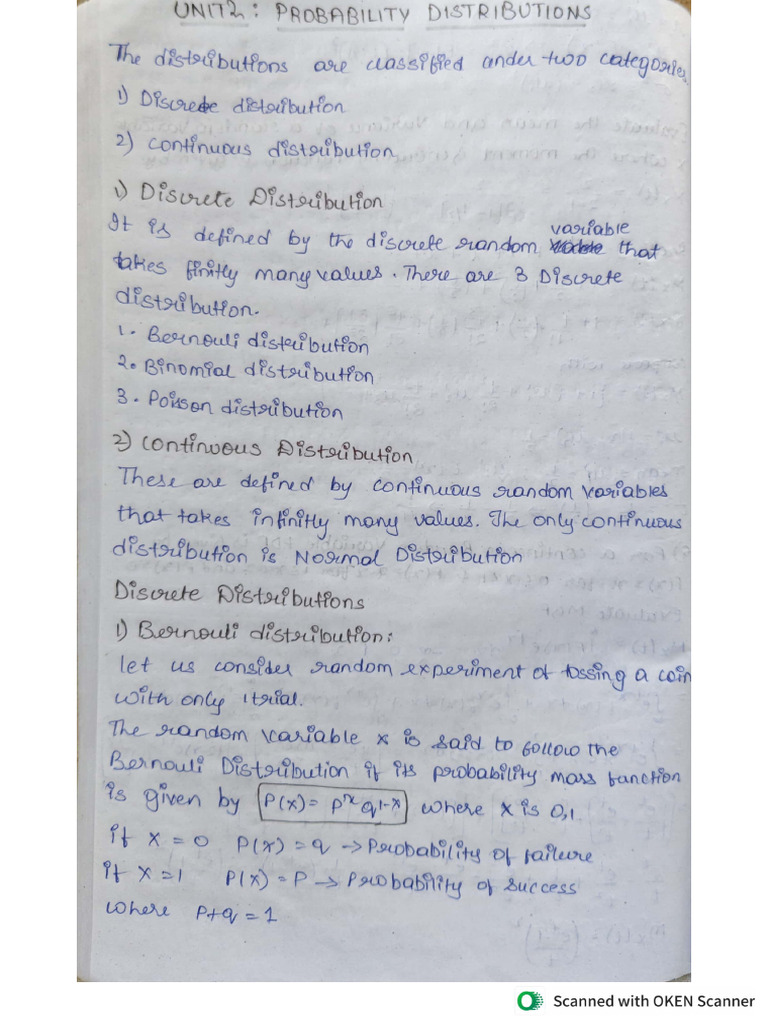 UNIT 2: PROBABILITY DISTRIBUTIONS
The distributions are classified under two categories.
1) Discrete distribution
2) continuous distribution
1) Discrete Distribution
It is defined by the discrete random variable that
takes finitly many values. There are 3 Discrete
distribution.
1. Bernouli distribution
2. Binomial distribution
3. Poisson distribution
2) continuous Distribution
These are defined by continuous random variables
that takes infinitly many values. The only continuous
distribution is Normal Distribution
Discrete Distributions
1) Bernouli distribution:
let us consider random experiment of tossing a coin
with only 1 trial.
The random variable x is said to follow the
Bernouli Distribution if its probability mass function
is given by P(x) = p^x q^1-x where x is 0,1
if x = 0 P(x) = q → Probability of failure
if x = 1 P(x) = P → Probability of success
where P+q = 1
Scanned with OKEN Scanner